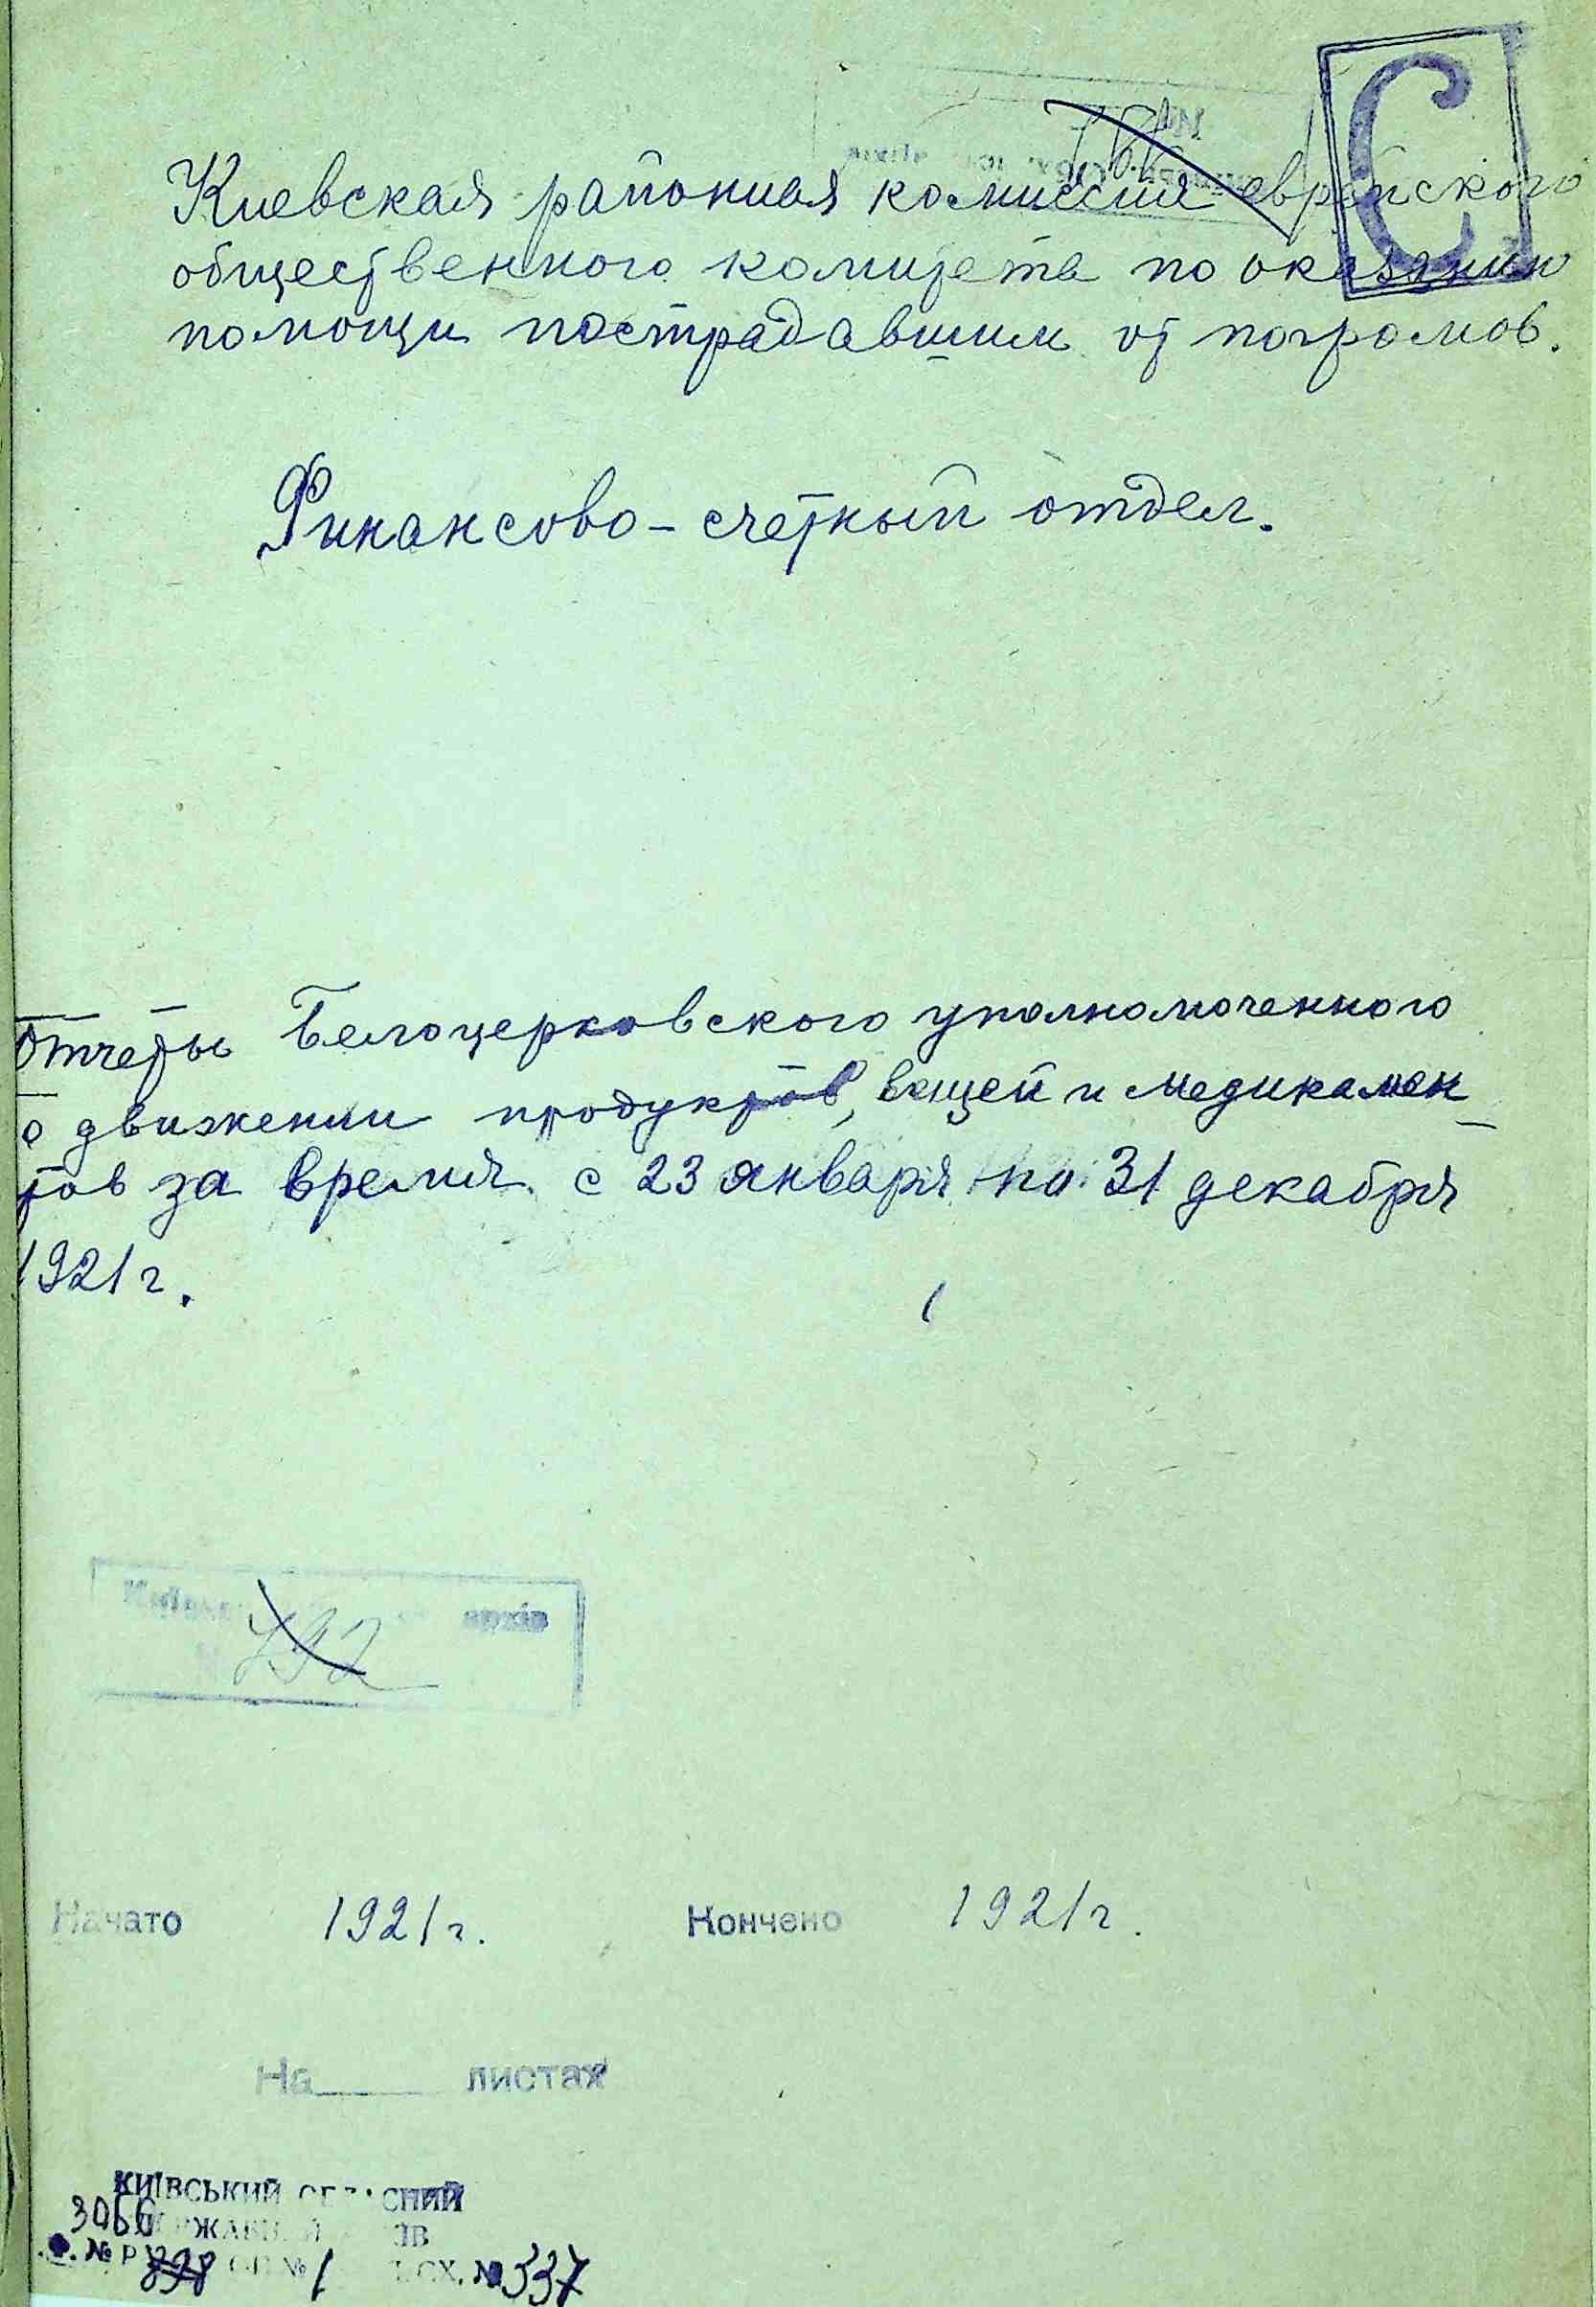 С
Киевская районная комиссия еврейского
общественного комитета по оказанию
помощи пострадавшим от погромов.
Финансово-счетный отдел.
Отчеты Белоцерковского уполномоченного
о движении продуктов, вещей и медикамен-
тов за время с 23 января по 31 декабря
1921 г.
архів
792
Начато 1921 г. Кончено 1921 г.
На листах
КИЇВСЬКИЙ ОБЛАСНИЙ
ДЕРЖАВНИЙ АРХІВ
Ф. № Р 3050 898 ОП № 1 ОД. СХ. № 337